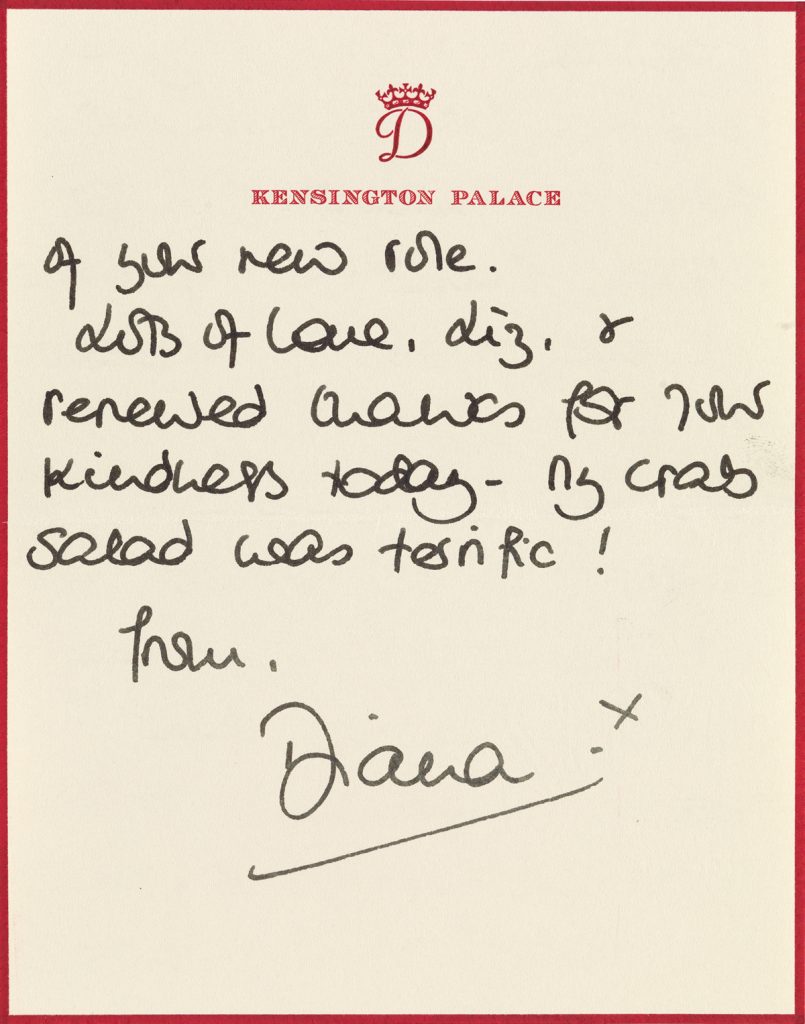 D
KENSINGTON PALACE
of your new role.
Lots of love, Liz, &
renewed thanks for your
kindness today - my crab
salad was terrific!
from,
Diana. x